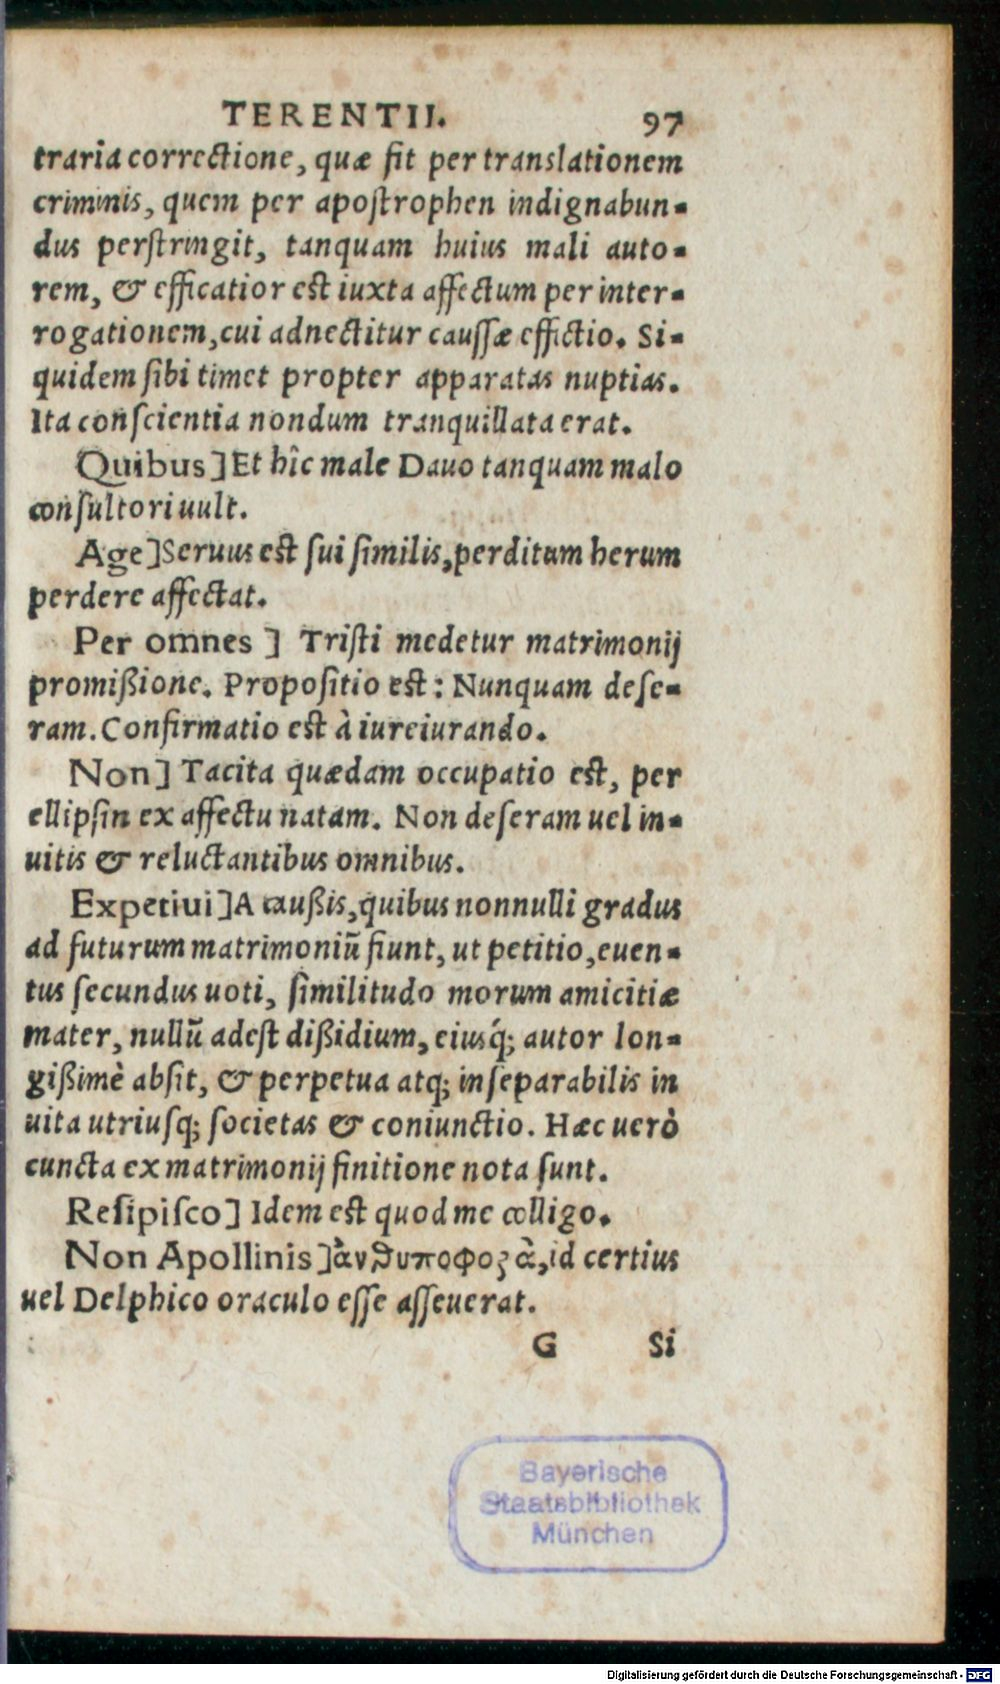 TERENTII. 97
traria correctione, quæ fit per translationem
criminis, quem per apoſtrophen indignabun-
dus perſtringit, tanquam huius mali auto-
rem, & efficatior est iuxta affectum per inter-
rogationem, cui adnectitur cauſſæ effictio. Si-
quidem ſibi timet propter apparatas nuptias.
Ita conſcientia nondum tranquillata erat.
Quibus] Et hîc male Dauo tanquam malo
conſultori uult.
Age] Seruus est ſui ſimilis, perditum herum
perdere affectat.
Per omnes] Triſti medetur matrimonij
promißione. Propoſitio est: Nunquam deſe-
ram. Confirmatio est à iureiurando.
Non] Tacita quædam occupatio est, per
ellipſin ex affectu natam. Non deſeram uel in-
uitis & reluctantibus omnibus.
Expetiui] A caußis, quibus nonnulli gradus
ad futurum matrimoniũ fiunt, ut petitio, euen-
tus ſecundus uoti, ſimilitudo morum amicitiæ
mater, nullũ adeſt dißidium, eiusq́; autor lon-
gißimè abſit, & perpetua atq; inſeparabilis in
uita utriuſq; ſocietas & coniunctio. Hæc uerò
cuncta ex matrimonij finitione nota ſunt.
Reſipiſco] Idem est quod me colligo.
Non Apollinis] ἀνθυποφορὰ, id certius
uel Delphico oraculo eſſe aſſeuerat.
G Si
Bayerische
Staatsbibliothek
München
Digitalisierung gefördert durch die Deutsche Forschungsgemeinschaft - DFG